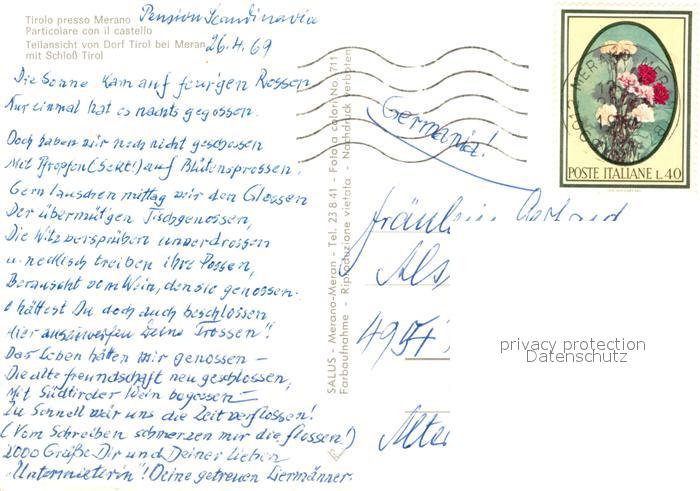 Tirolo presso Merano
Particolare con il castello
Teilansicht von Dorf Tirol bei Meran
mit Schloß Tirol
Pension Scandinavia
26.4.69
Die Sonne kam auf feur'gen Rossen
Nur einmal hat es nachts gegossen.
Doch haben wir noch nicht geschossen
Mit Pfropfen (Sekt!) auf Blütensprossen.
Gern lauschen mittag wir den Glossen
Der übermüt'gen Tischgenossen,
Die Witz versprühen unverdrossen
u. neckisch treiben ihre Possen,
Berauscht vom Wein, den sie genossen.
O hättest Du doch auch beschlossen
Hier auszuwerfen Deine "Trossen"!
Das Leben hätten wir genossen —
Die alte Freundschaft neu geschlossen,
Mit Südtiroler Wein begossen —
Zu schnell wär uns die Zeit verflossen!
(Vom Schreiben schmerzen mir die Flossen!)
2000 Grüße Dir und Deiner lieben
"Untermieterin"! Deine getreuen Liermänner.
SALUS - Merano-Meran - Tel. 23 8 41 - Fotola colori No. 711
Farbaufnahme - Riproduzione vietata - Nachdruck verboten
Germania!
POSTE ITALIANE L. 40
Fräulein
Als
495
Alte
privacy protection
Datenschutz